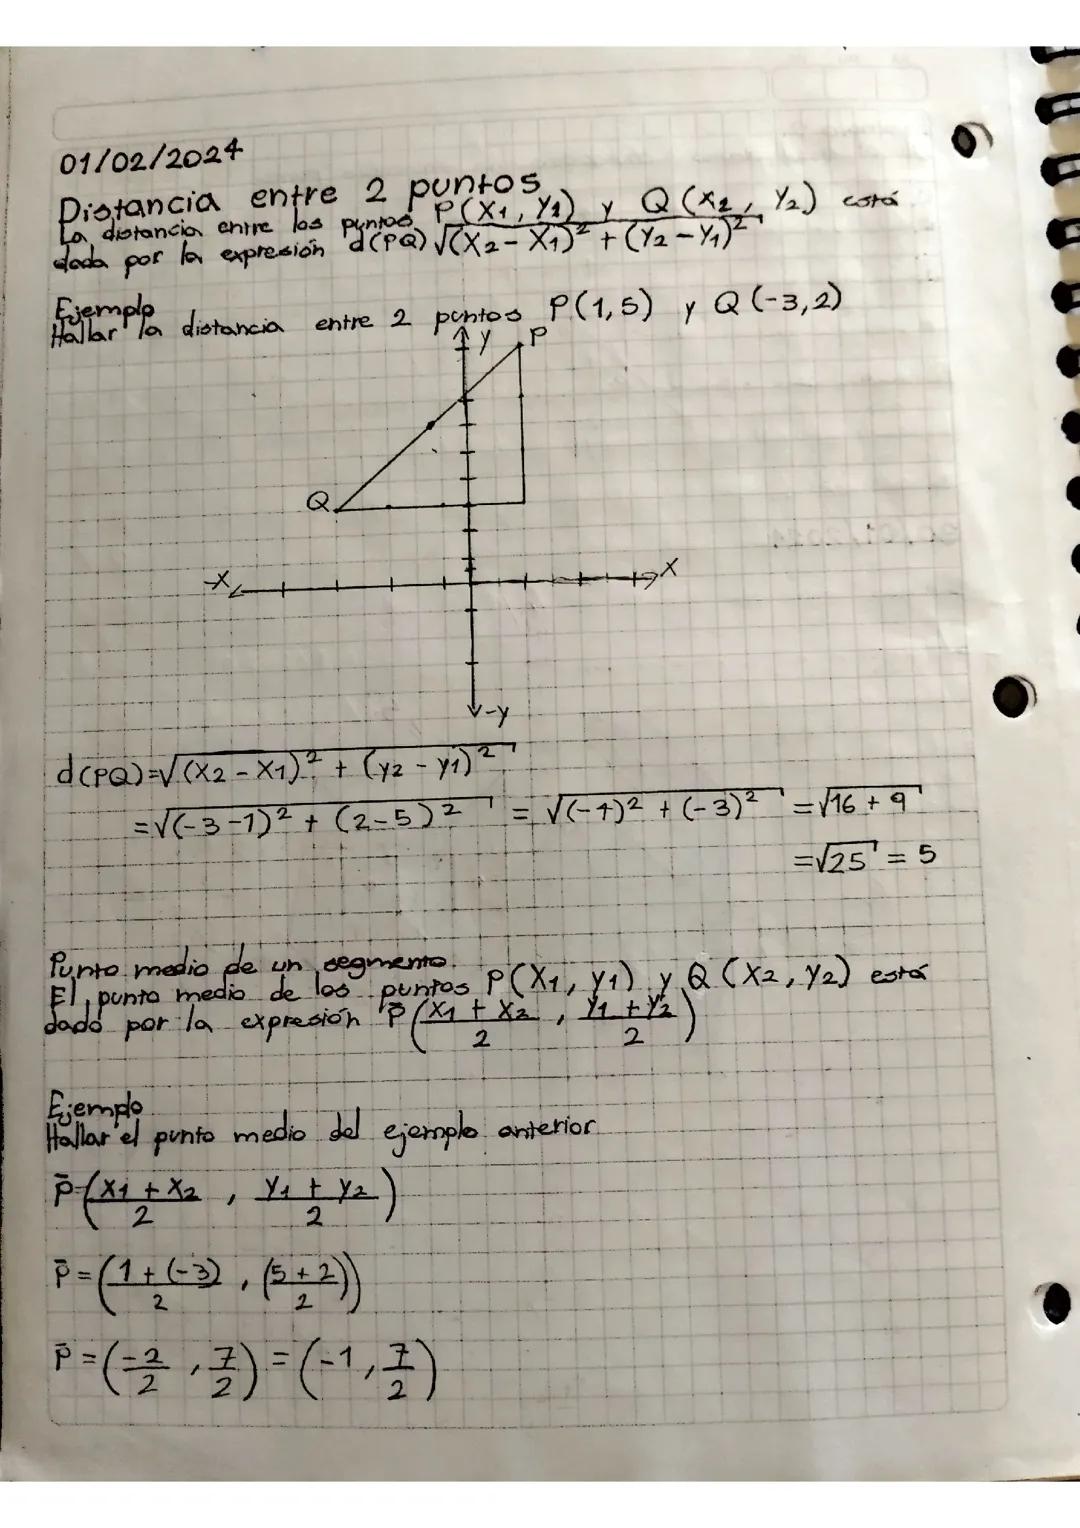 01/02/2024
Distancia entre 2 puntos
La distancia entre los puntos P(X1, Y1) y Q(X2, Y2) está
dada por la expresión d(PQ) √(X2-X1)² + (Y2-Y1)²
Ejemplo
Hallar la distancia entre 2 puntos P(1,5) y Q(-3,2)
y P
Q
-X X
-y
d(PQ)=√(X2-X1)² + (y2-y1)²
=√(-3-1)² + (2-5)² = √(-4)² + (-3)² = √16+9
=√25 = 5
Punto medio de un segmento.
El punto medio de los puntos P(X1, y1) y Q(X2, y2) está
dado por la expresión P̄(X1 + X2 / 2, Y1 + Y2 / 2)
Ejemplo
Hallar el punto medio del ejemplo anterior
P̄(X1 + X2 / 2, Y1 + Y2 / 2)
P̄=(1+(-3) / 2, (5+2 / 2))
P̄=(-2/2, 7/2)=(-1, 7/2)